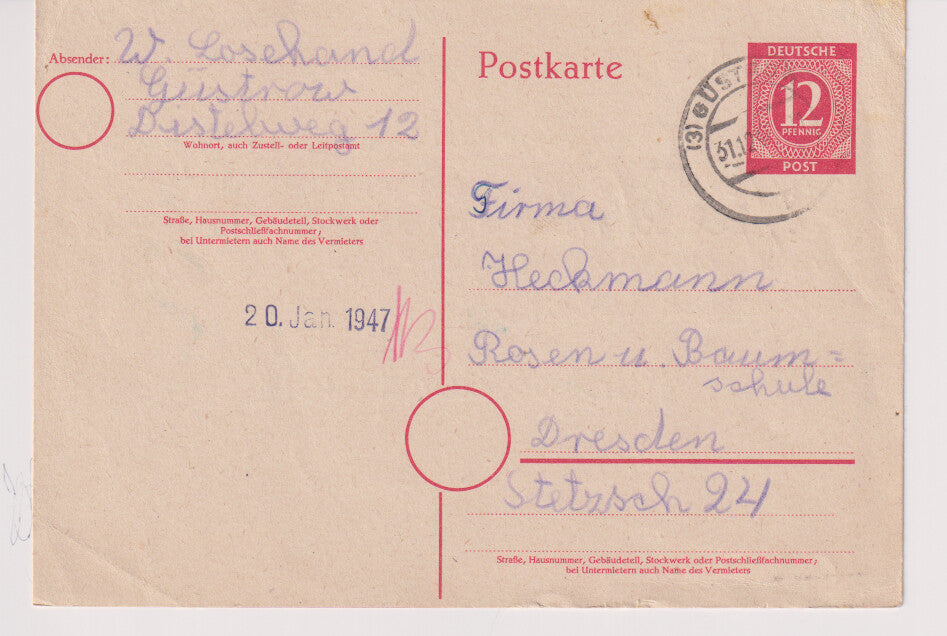 Absender: W. Losehand
Güstrow
Distelweg 12
Wohnort, auch Zustell- oder Leitpostamt
Straße, Hausnummer, Gebäudeteil, Stockwerk oder
Postschließfachnummer;
bei Untermietern auch Name des Vermieters
20. Jan. 1947
Postkarte
DEUTSCHE
12
PFENNIG
POST
(3) GÜST
31.12
Firma
Heckmann
Rosen u. Baum=
schule
Dresden
Stetzsch 24
Straße, Hausnummer, Gebäudeteil, Stockwerk oder Postschließfachnummer;
bei Untermietern auch Name des Vermieters